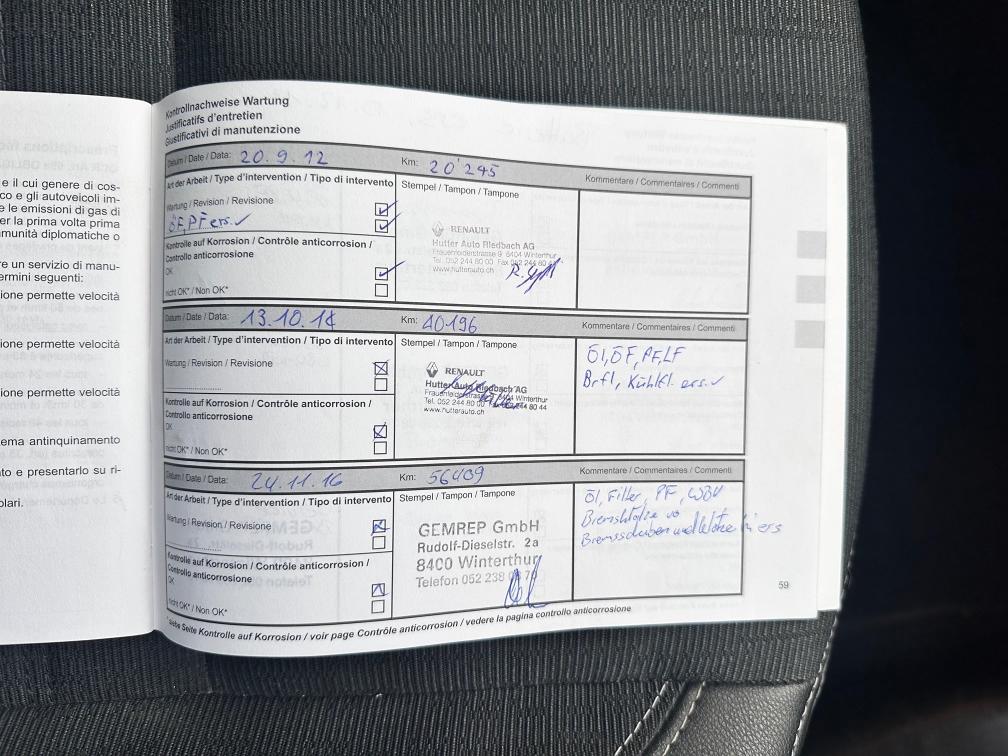 e il cui genere di cos-
co e gli autoveicoli im-
e le emissioni di gas di
er la prima volta prima
munità diplomatiche o
re un servizio di manu-
ermini seguenti:
ione permette velocità
ione permette velocità
ione permette velocità
ema antinquinamento
to e presentarlo su ri-
olari.
Kontrollnachweise Wartung
Justificatifs d'entretien
Giustificativi di manutenzione
Datum / Date / Data: 20.9.12 Km: 20'245 Kommentare / Commentaires / Commenti
Art der Arbeit / Type d'intervention / Tipo di intervento Stempel / Tampon / Tampone
Wartung / Revision / Revisione
ÖF, PF ers. ✓
RENAULT
Hutter Auto Riedbach AG
Frauenfelderstrasse 9 8404 Winterthur
Tel. 052 244 80 00 Fax 052 244 80 44
www.hutterauto.ch
Kontrolle auf Korrosion / Contrôle anticorrosion /
Controllo anticorrosione
OK
nicht OK* / Non OK*
Datum / Date / Data: 13.10.14 Km: 40196 Kommentare / Commentaires / Commenti
Art der Arbeit / Type d'intervention / Tipo di intervento Stempel / Tampon / Tampone
Öl, ÖF, PF, LF
Brfl, Kühlfl. ers. ✓
Wartung / Revision / Revisione
RENAULT
Hutter Auto Riedbach AG
Frauenfelderstrasse 9 8404 Winterthur
Tel. 052 244 80 00 Fax 052 244 80 44
www.hutterauto.ch
Kontrolle auf Korrosion / Contrôle anticorrosion /
Controllo anticorrosione
OK
nicht OK* / Non OK*
Datum / Date / Data: 24.11.16 Km: 56409 Kommentare / Commentaires / Commenti
Art der Arbeit / Type d'intervention / Tipo di intervento Stempel / Tampon / Tampone
Öl, Filter, PF
Wartung / Revision / Revisione
GEMREP GmbH
Rudolf-Dieselstr. 2a
8400 Winterthur
Telefon 052 238
Bremsklötze vo
Bremsscheiben und klötze hi ers
Kontrolle auf Korrosion / Contrôle anticorrosion /
Controllo anticorrosione
OK
nicht OK* / Non OK*
* siehe Seite Kontrolle auf Korrosion / voir page Contrôle anticorrosion / vedere la pagina controllo anticorrosione
59